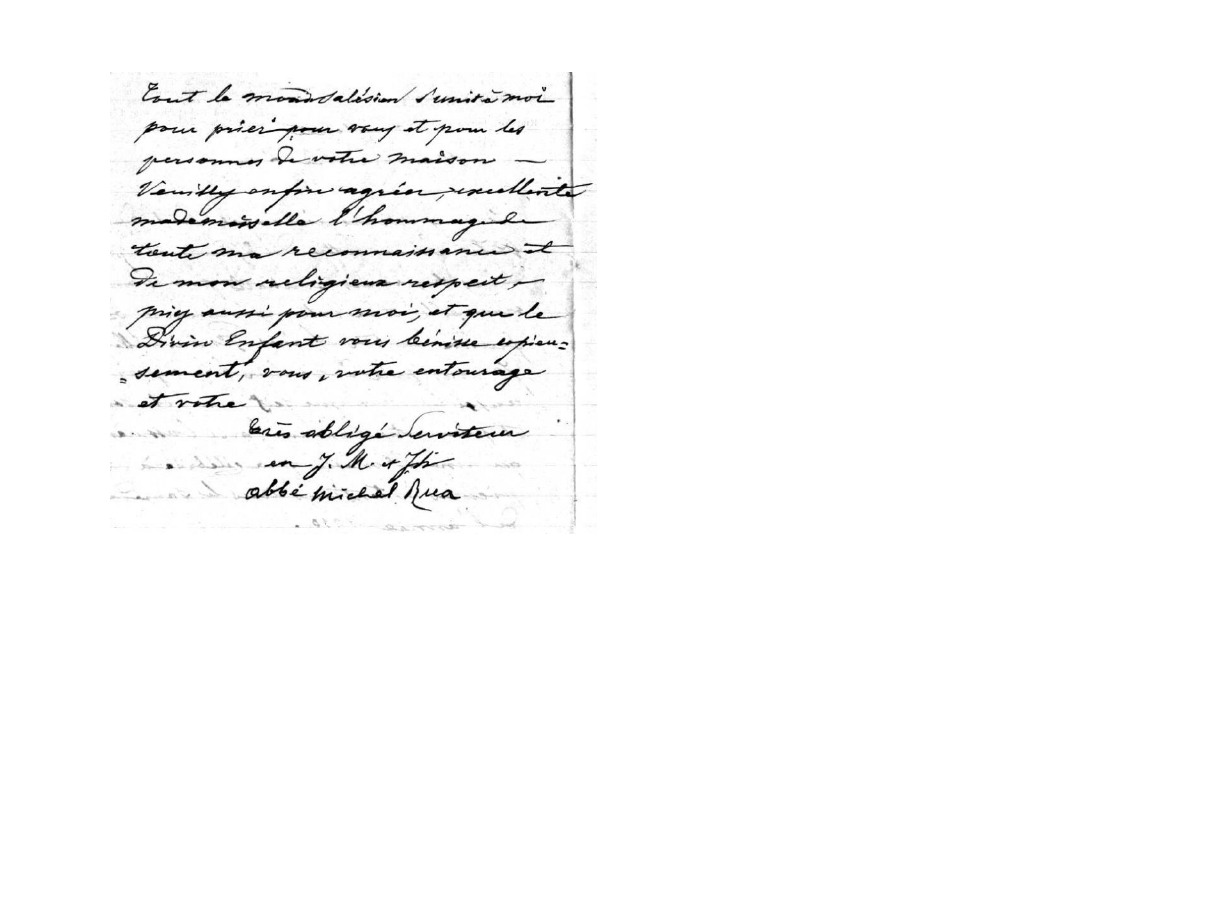 Tout le monde salésien s'unit à moi
pour prier pour vous et pour les
personnes de votre maison —
Veuillez enfin agréer, excellente
mademoiselle l'hommage de
toute ma reconnaissance et
de mon religieux respect, —
priez aussi pour moi, et que le
Divin Enfant vous bénisse copieu=
=sement, vous, votre entourage
et votre
très obligé Serviteur
en J. M. et
abbé Michel Rua